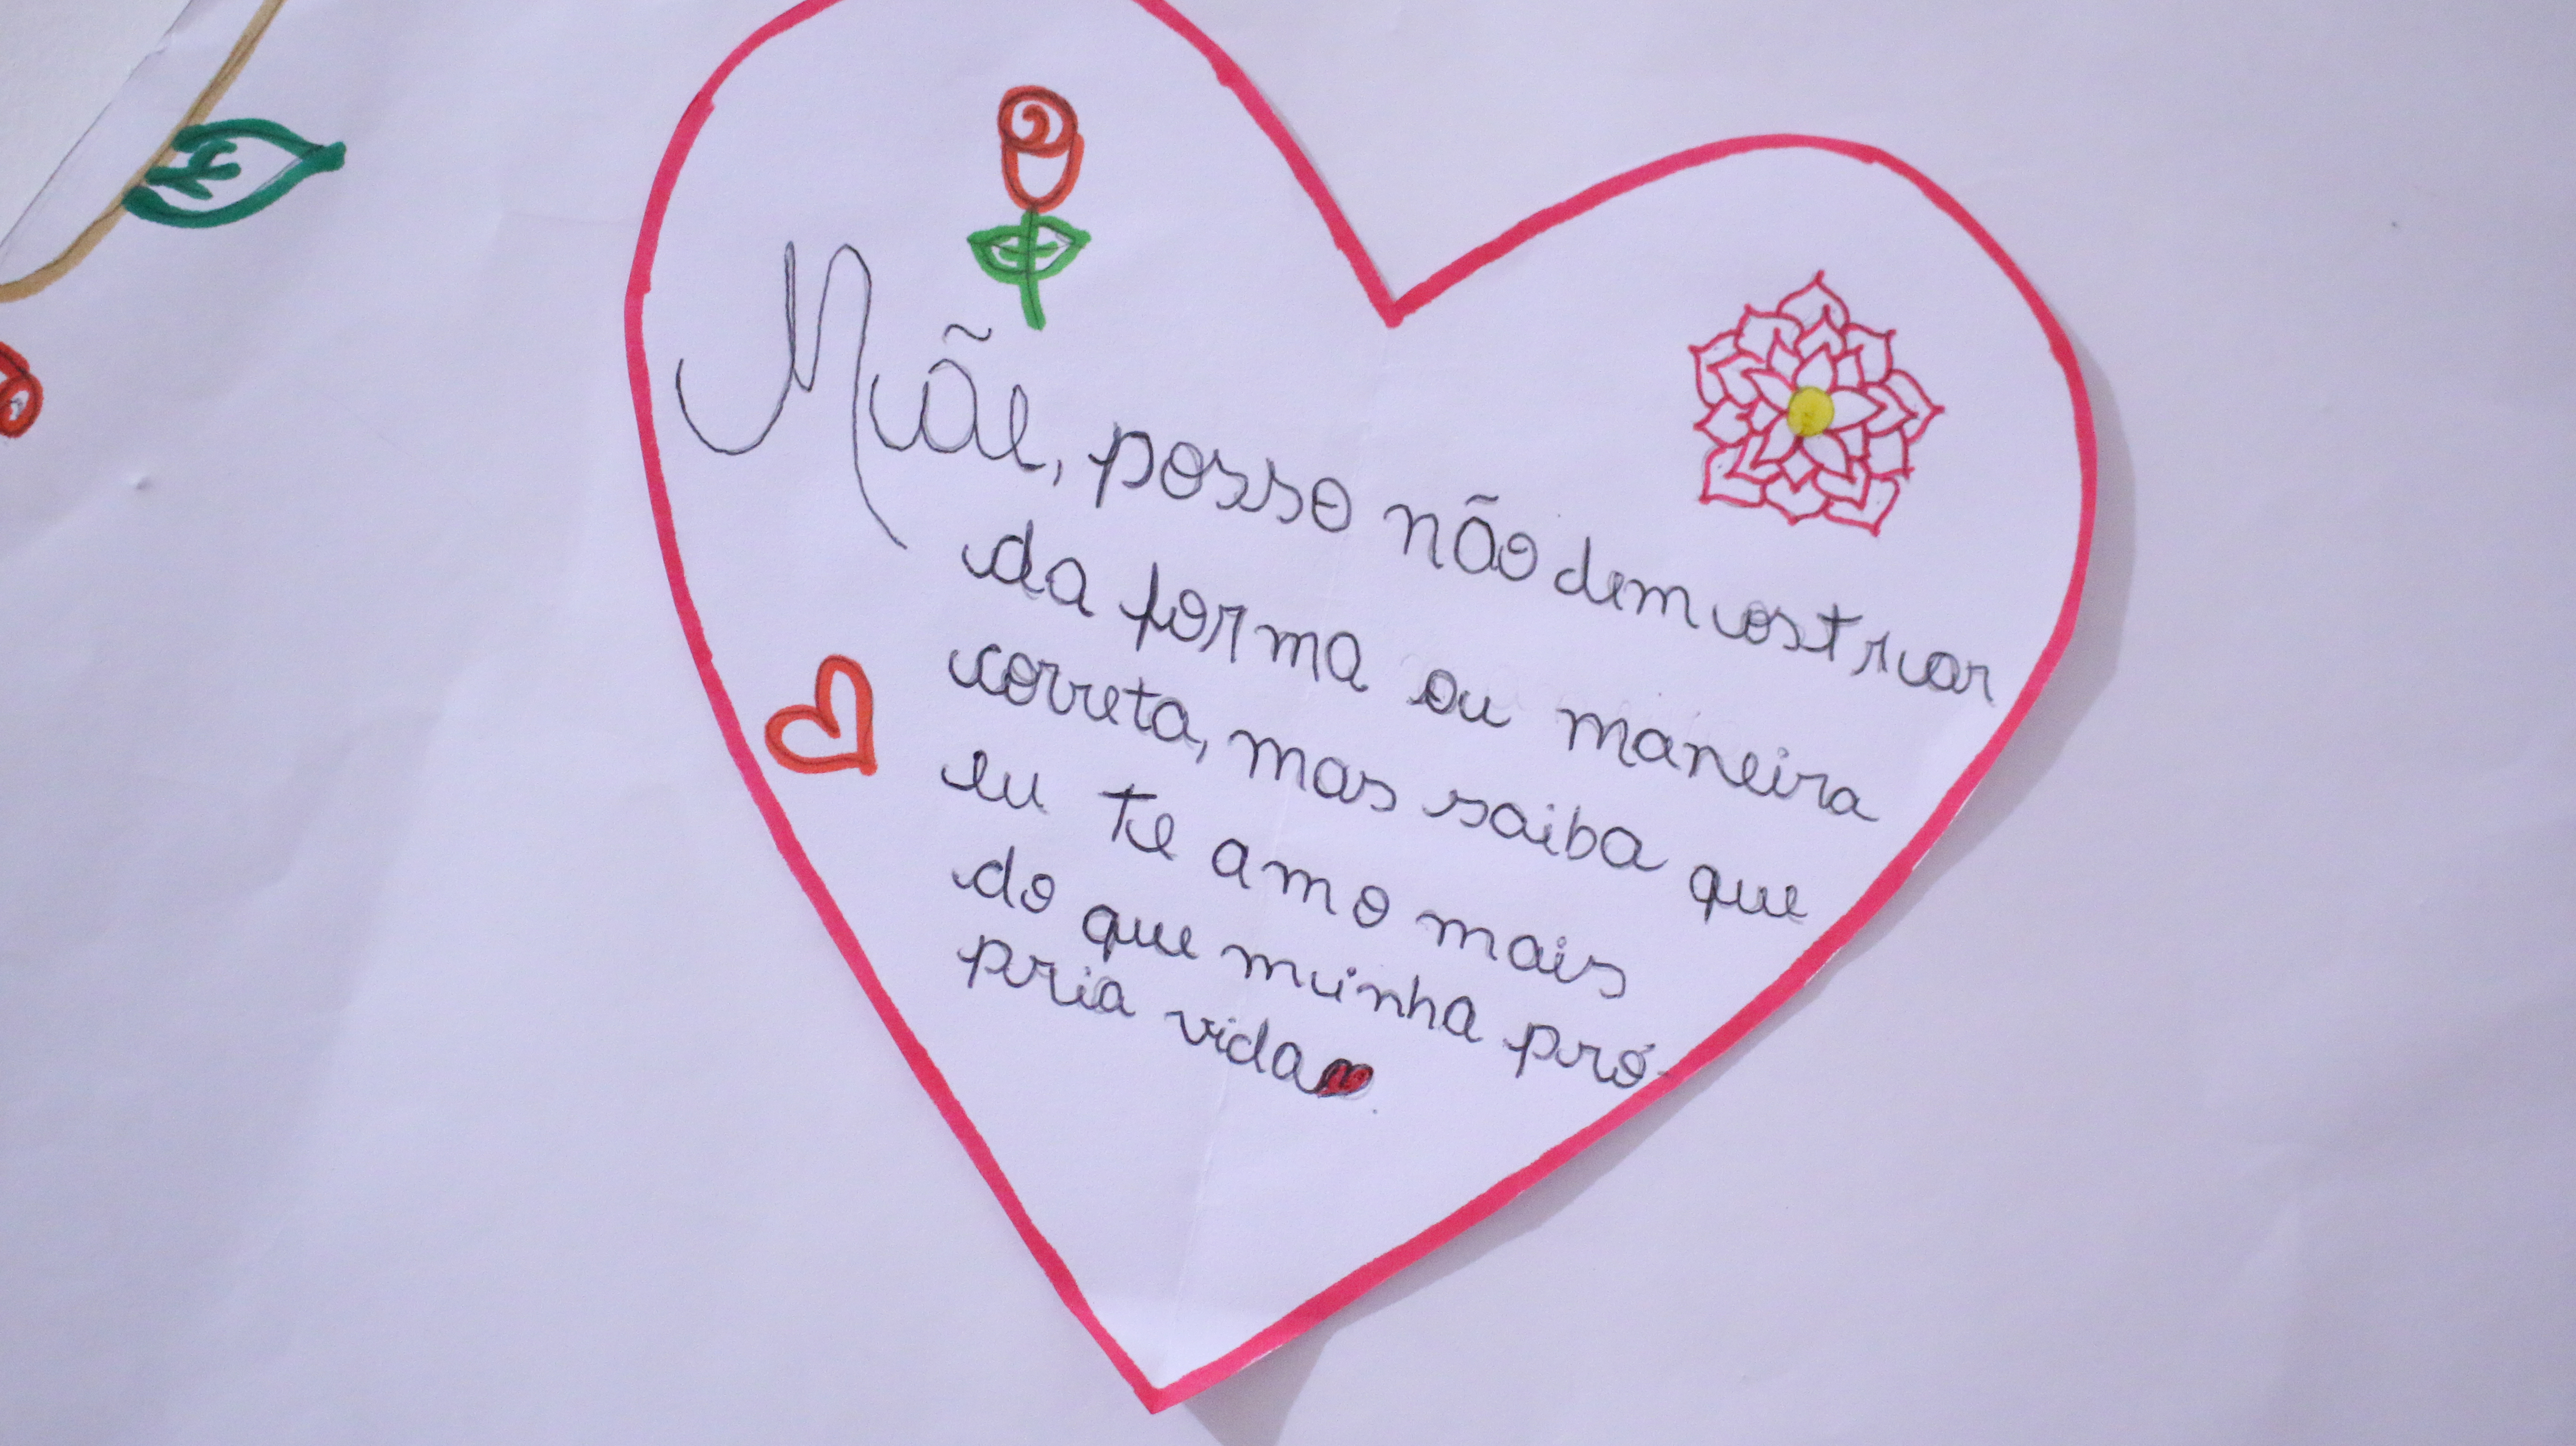 Mãe, posso não demostrar
da forma ou maneira
correta, mas saiba que
eu te amo mais
do que minha pró-
pria vida